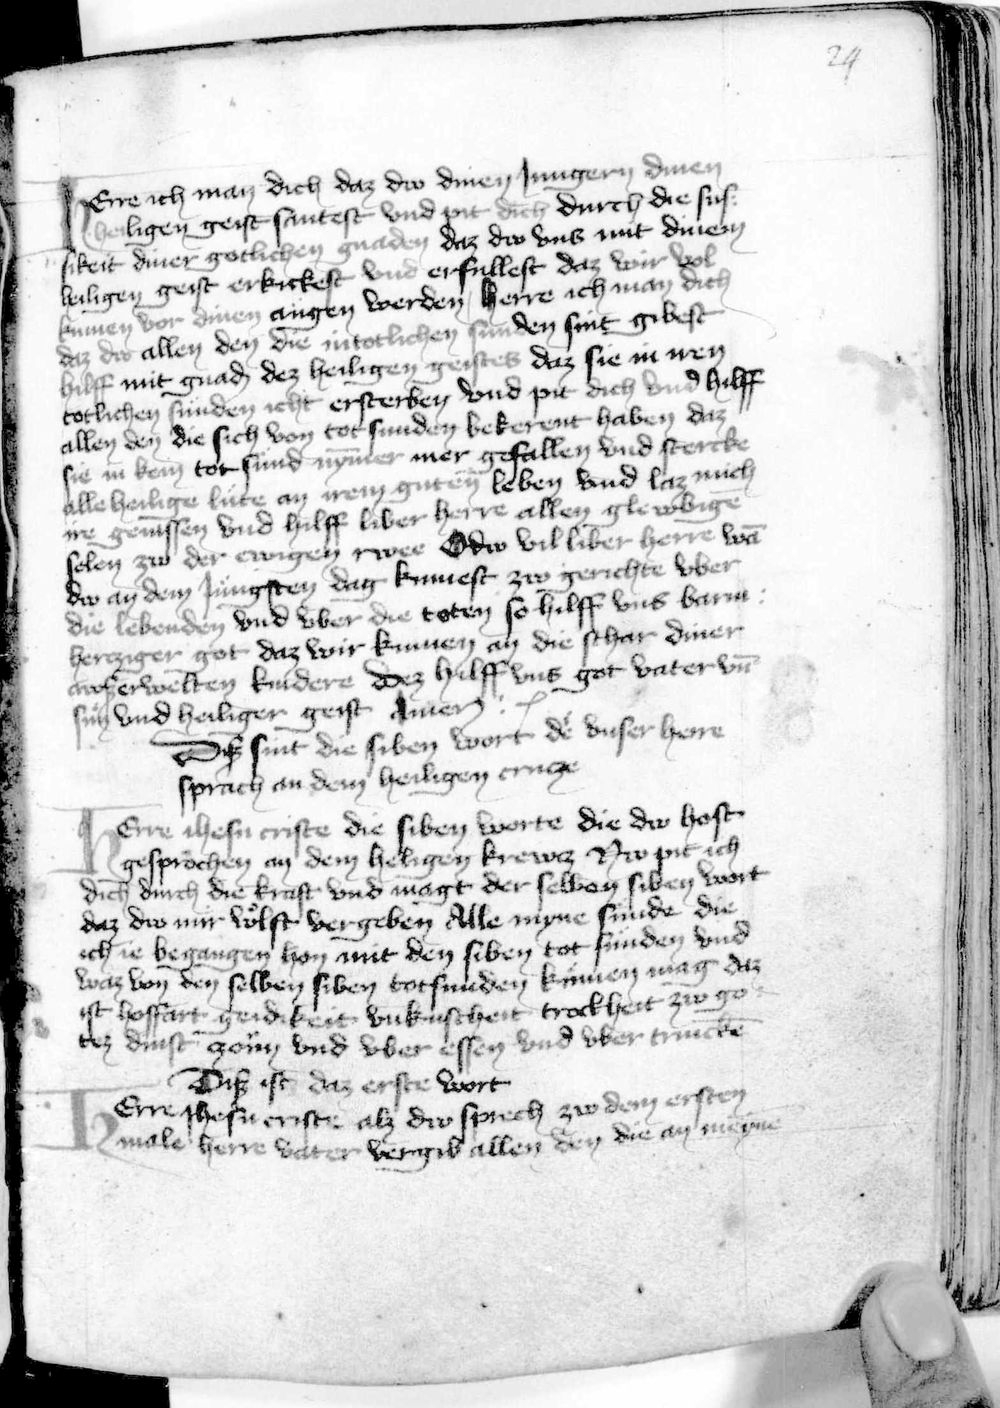 24
HErre ich man dich daz dw dinen Jungern dinen
heiligen geist santest vnd pit dich durch die sus:
sikeit diner gotlichen gnaden daz dw vns mit dinem
heiligen geist erkickest vnd erfullest daz wir wol
kumen vor dinen augen werden herre ich man dich
daz dw allen den die in totlichen sunden sint gibest
hilff mit gnad dez heiligen geistes daz sie in iren
totlichen sunden icht ersterben vnd pit dich vnd hilff
allen den die sich von tot sunden bekerent haben daz
sie in kein tot sund nymer mer gefallen vnd stercke
alle heilige lute an irem guten leben vnd laz mich
ire genissen vnd hilff liber herre allen glewbige
selen zw der ewigen rwee O dw vil liber herre wā
dw an dem Jungsten dag kumest zw gerichte vber
die lebenden vnd vber die toten so hilff vns barm:
hercziger got daz wir kumen an die schar diner
awßerwelten kindere Dez hilff vns got vater vn̄
sun vnd heiliger geist Amen
Diß sint die siben wort de vnser herre
sprach an dem heiligen crucze
HErre ihesu criste die siben worte die dw host
gesprochen an dem heligen krewcz Nw pit ich
dich durch die kraft vnd magt der selben siben wort
daz dw mir wolst vergeben Alle myne sunde die
ich ie begangen hon mit den siben tot sunden vnd
waz von den selben siben totsunden kumen mag daz
ist hoffart geidikeit vnkuscheit trockheit zw go
tez dinst zorn vnd vber essen vnd vber trincke
Diß ist daz erste wort
HErre Jhesu criste alz dw sprech zw dem ersten
male herre vater vergib allen den die an meyne